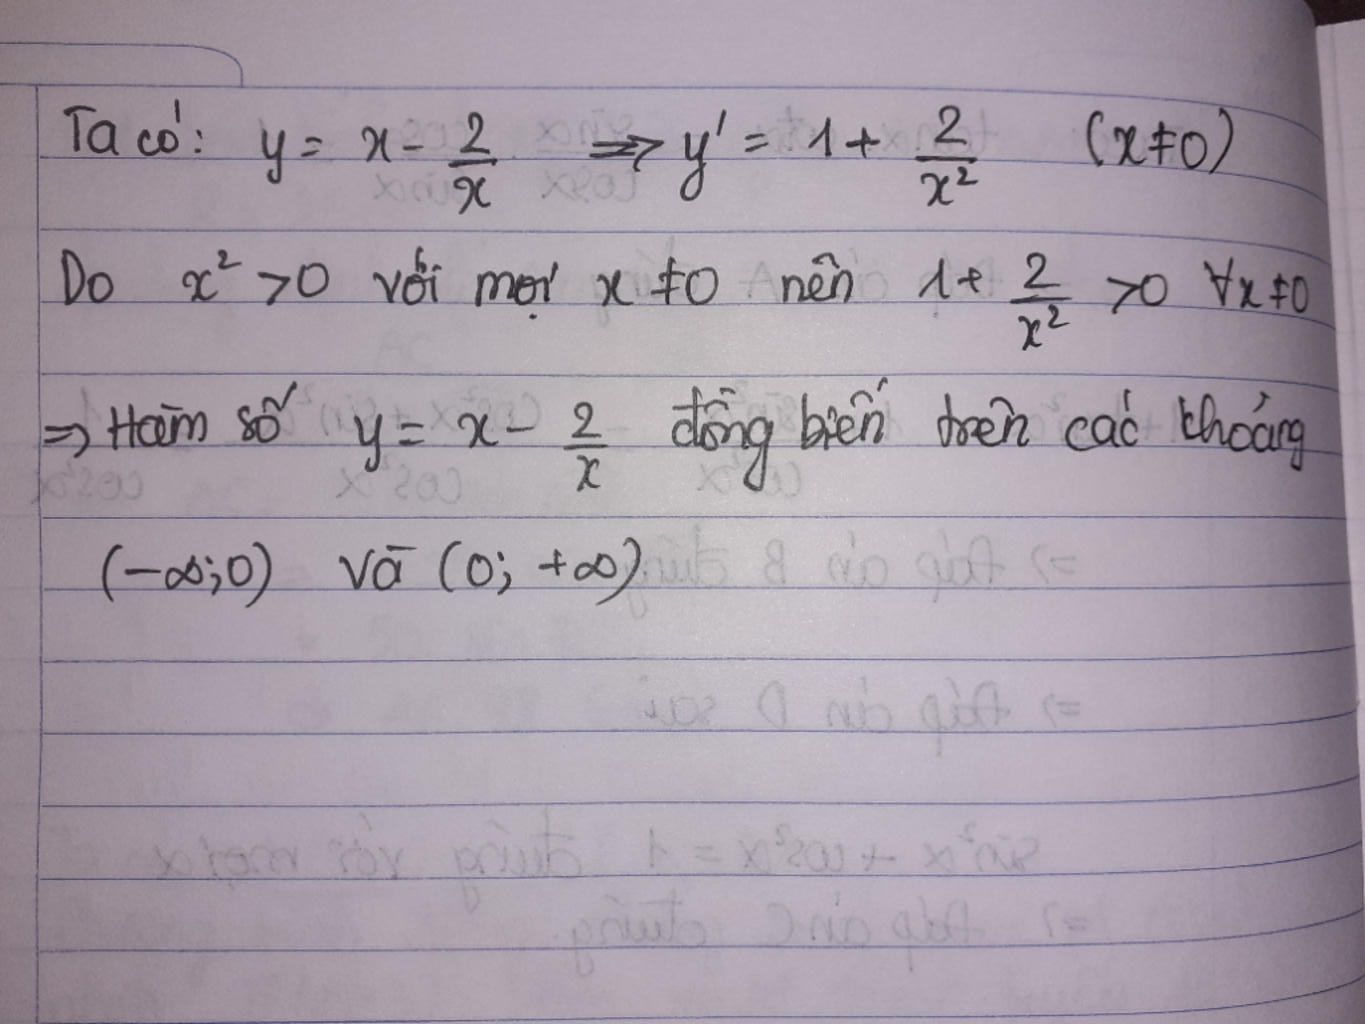 Ta có: y = x - 2/x ⇒ y' = 1 + 2/x² (x ≠ 0)
Do x² > 0 với mọi x ≠ 0 nên 1 + 2/x² > 0 ∀x ≠ 0
⇒ Hàm số y = x - 2/x đồng biến trên các khoảng
(-∞; 0) và (0; +∞)